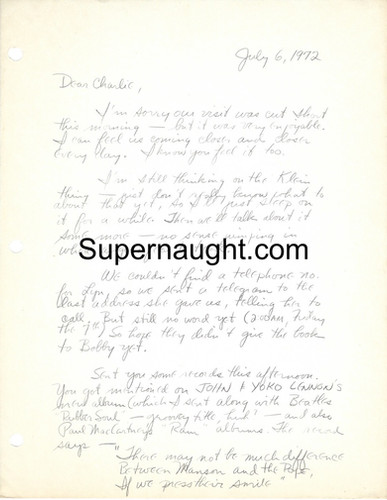 July 6, 1972
Dear Charlie,
I'm sorry our visit was cut short
this morning — but it was very enjoyable.
I can feel us coming closer and closer
every day. I know you feel it too.
I'm still thinking on the Klein
thing — just don't really know what to
about that yet, so I'll just sleep on
it for a while. Then we'll talk about it
some more — no sense jumping in
Supernaught.com
We couldn't find a telephone no.
for Lyn, so we sent a telegram to the
last address she gave us, telling her to
call. But still no word yet
the 7th) So hope they didn't give the book
to Bobby yet.
Sent you some records this afternoon.
You got mentioned on JOHN & YOKO LENNON'S
new album (which I sent along with Beatles
"Rubber Soul" — groovy title, huh? — and also
Paul McCartney's "Ram" albums. The record
says — "There may not be much difference
Between Manson and the Pope,
If we press their smile"